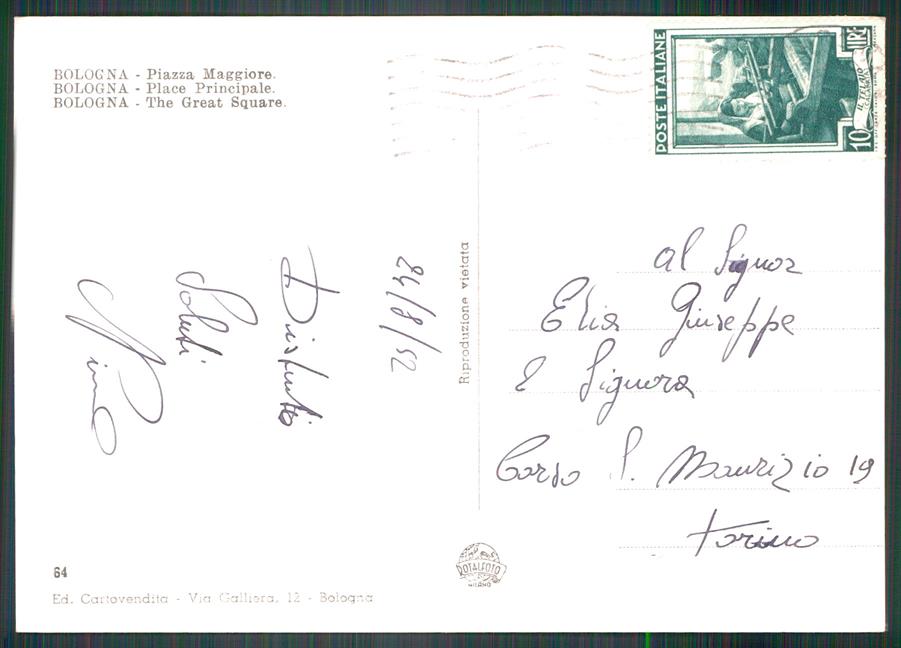 BOLOGNA - Piazza Maggiore.
BOLOGNA - Place Principale.
BOLOGNA - The Great Square.
POSTE ITALIANE
LIRE
10
IL TELAIO
24/8/52
Distinti
Saluti
Nino
Riproduzione vietata
Al Signor
Elia Giuseppe
e Signora
Corso S. Maurizio 19
Torino
64
Ed. Cartovendita - Via Galliera, 12 - Bologna
ROTALFOTO
MILANO